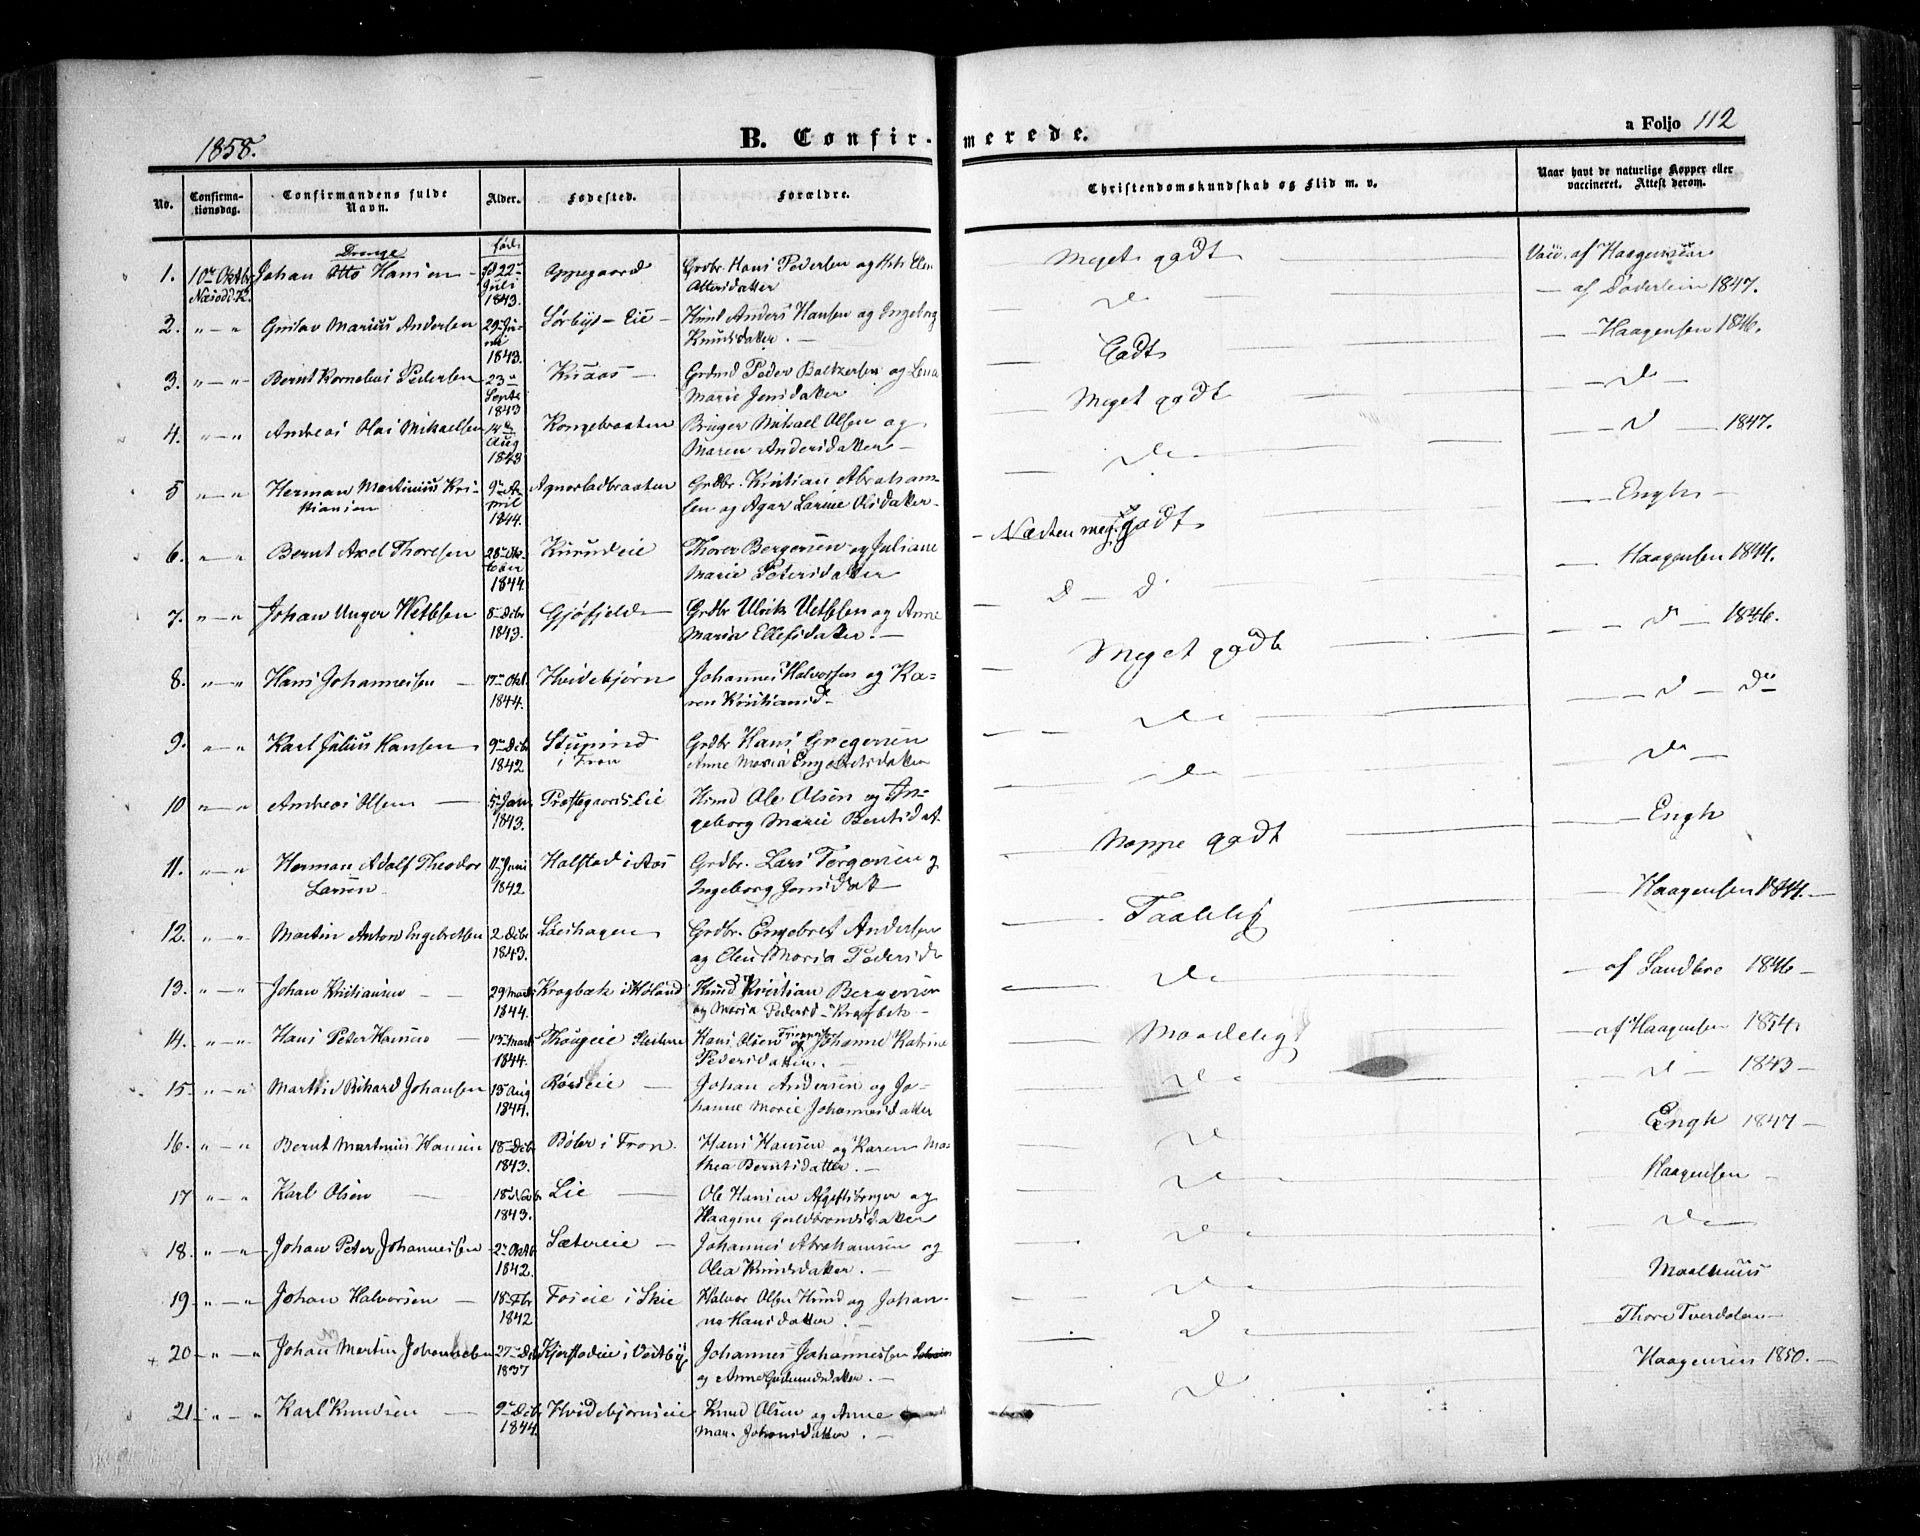 1858.
B. Confirmerede.
a Foljo 112
No.
Confirmationsdag.
Confirmandens fulde Navn.
Alder.
Fødested.
Forældre.
Christendomskundskab og Flid m. v.
Naar havt de naturlige Kopper eller vaccineret. Attest derom.
Drenge
født
1. 10de Oktbr Næsodd. K. Johan Otto Hansen 22 Juli 1843. Oppegaard Grdbr. Hans Pedersen og Ellen Ottersdatter Meget godt Vacc. af Haagensen
2. " — " Gustav Marius Andersen 29 Juni 1843. Sørbyst Eie Husmd Anders Hansen og Ingeborg Knudsdatter. — Do af Döderlein 1847.
3. " — " Bernt Kornelius Pedersen 23 Septr 1843 Kruos Grdmd Peder Baltzersen og Lena Marie Jensdatter Godt Haagensen 1846.
4. " — " Andreas Olai Mikaelsen 14 Aug 1843 Kongebraaten Bruger Mikael Olsen og Maren Andersdatter — Meget godt — Do —
5 " — " Herman Martinius Kristiansen 9 April 1844. Agnorladbraaten Grdbr. Kristian Abrahamsen og Agar Larine Olsdatter — Do — D — 1847.
6. " — " Bernt Axel Thoresen 28 Oktober 1844. Krusudeie Thorer Bergersen og Juliane Marie Petersdatter Næsten meg. godt Engh —
7. " — " Johan Unger Wetlesen 8 Debr 1843. Gjøfjeld Grdbr Ulrik Vetlesen og Anne Maria Ellefsdatter. — D — D. Haagensen 1844.
8. " — " Hans Johannesen 17 Okt. 1844. Hvidebjørn Johannes Halvorsen og Karen Kristiansd — Meget godt — D — 1846.
9. " — " Karl Julius Hansen 9 Debr 1842. Stupind i Fron Grdbr Hans Gregersen Anne Maria Engebretsdatter Do — D — Do
10 " — " Andreas Olsen 5 Jan 1843. Præstegaards Eie Husmd Ole Olsen og Ingeborg Marie Berntsdat. Do Do —
11. " — " Herman Adolf Theodor Larsen 11 Juni 1842. Halstad i Aas Grdbr. Lars Torgersen og Ingeborg Jensdat — Noppe godt Engh
12. " — " Martin Anton Engebretsen 2 Debr 1843. Lieshagen Grdbr. Engebret Andersen og Oleu Maria Pedersd Taalelig Haagensen 1844. —
13. " — " Johan Kristiansen 29 Marts 1844. Krogbæk i Høland Husmd Kristian Bergersen og Maria Pedersd — Krogbek — Do af Sandbre 1846 —
14. " — " Hans Peter Hansen 13 Marts 1844. Hans Olsen og Johanne Katrine Pedersdatter. — Maadelig af Haagensen 1854.
15 " — " Martin Rikard Johansen 15 Aug 1844. Røreie Johan Andersen og Johanne Marie Johannesdatter Do — D — 1843 —
16. " — " Bernt Martinus Hansen 18 Debr 1843. Bøler i Fron. Hans Hansen og Karen Mathea Berntsdatter. — Do Engh 1847 —
17 " — " Karl Olsen 18 Novb 1843. Lie Ole Hansen og Haagine Guldbrandsdatter Do Haagensen —
18. " — " Johan Peter Johannessen 2 Oktb 1842. Sætereie — Johannes Abrahamsen og Olea Knudsdatter. — Do — Do —
19 " — " Johan Halvorsen 18 Fbr 1842 Foseie i Skie Halvor Olsen Husmd og Johanne Hansdatter. — Do Maalhuus
+ 20 " — " Johan Martin Johannesen 27 Deb 1837 Kjerstadeie i Vestby Johannes Johannessen og Anne Gudmundsdatter. — Do Thore Tverdalen —
21 " — " Karl Knudsen 9 Deb 1844. Hvidebjørnseie Knud Olsen og Anne Mar. Johansdatter. — Do Haagensen 1850. —